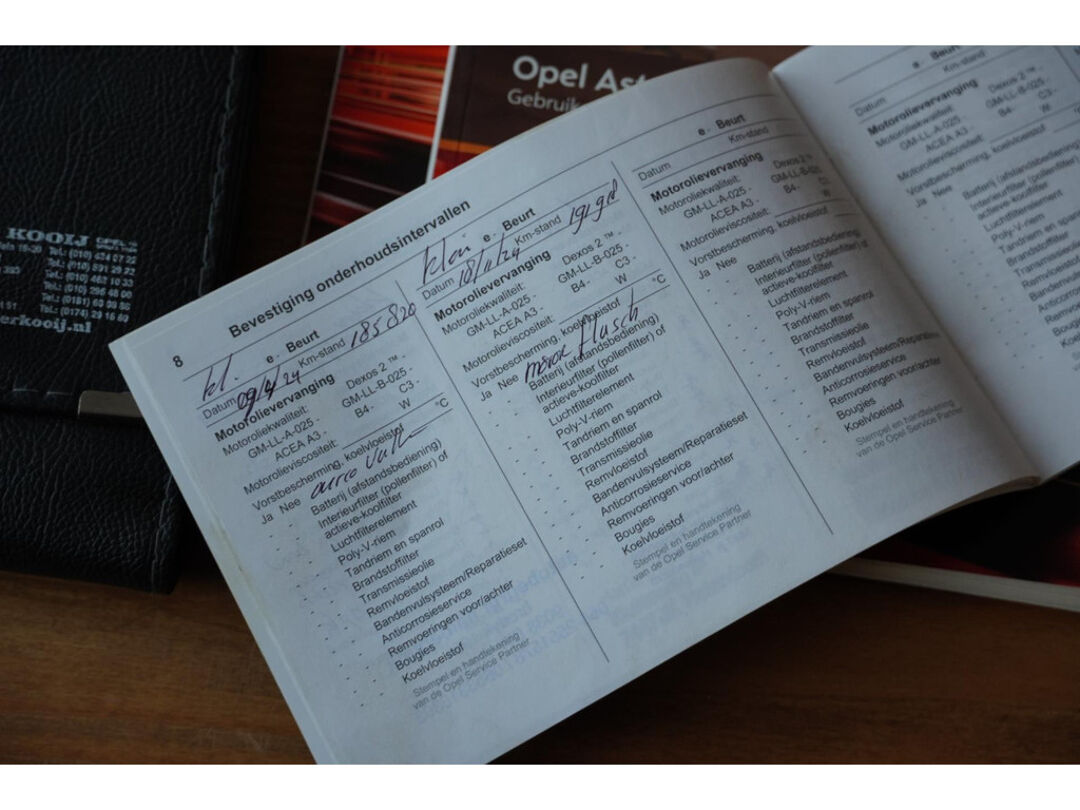 KOOIJ
erkooij.nl
Opel Ast
Gebruik
8
Bevestiging onderhoudsintervallen
kl. e - Beurt
Datum 09/4/24 Km-stand 185820
Motorolievervanging
Motoroliekwaliteit: Dexos 2 ™ -
GM-LL-A-025 - GM-LL-B-025 -
ACEA A3 - B4 - C3 -
Motorolieviscositeit: W °C
Vorstbescherming, koelvloeistof
Ja Nee
- - Batterij (afstandsbediening)
- - Interieurfilter (pollenfilter) of
actieve-koolfilter
- - Luchtfilterelement
- - Poly-V-riem
- - Tandriem en spanrol
- - Brandstoffilter
- - Transmissieolie
- - Remvloeistof
- - Bandenvulsysteem/Reparatieset
- - Anticorrosieservice
- - Remvoeringen voor/achter
- - Bougies
- - Koelvloeistof
Stempel en handtekening
van de Opel Service Partner
e - Beurt
Datum Km-stand
Motorolievervanging
Motoroliekwaliteit: Dexos 2 ™ -
GM-LL-A-025 - GM-LL-B-025 -
ACEA A3 - B4 - C3 -
Motorolieviscositeit: W °C
Vorstbescherming, koelvloeistof
Ja Nee flusch
- - Batterij (afstandsbediening)
- - Interieurfilter (pollenfilter) of
actieve-koolfilter
- - Luchtfilterelement
- - Poly-V-riem
- - Tandriem en spanrol
- - Brandstoffilter
- - Transmissieolie
- - Remvloeistof
- - Bandenvulsysteem/Reparatieset
- - Anticorrosieservice
- - Remvoeringen voor/achter
- - Bougies
- - Koelvloeistof
Stempel en handtekening
van de Opel Service Partner
e - Beurt
Datum Km-stand
Motorolievervanging
Motoroliekwaliteit: Dexos 2 ™ -
GM-LL-A-025 - GM-LL-B-025 -
ACEA A3 - B4 - C
Motorolieviscositeit: W
Vorstbescherming, koelvloeistof
Ja Nee
- - Batterij (afstandsbediening
- - Interieurfilter (pollenfilter) of
actieve-koolfilter
- - Luchtfilterelement
- - Poly-V-riem
- - Tandriem en spanrol
- - Brandstoffilter
- - Transmissieolie
- - Remvloeistof
- - Bandenvulsysteem/Reparatieset
- - Anticorrosieservice
- - Remvoeringen voor/achter
- - Bougies
- - Koelvloeistof
Stempel en handtekening
van de Opel Service Partner
e - Beurt
Datum Km-stand
Motorolievervanging
Motoroliekwaliteit: Dexos 2 ™ -
GM-LL-A-025 - GM-LL-B-025 -
ACEA A3 - B4 - C3 -
Motorolieviscositeit: W
Vorstbescherming, koelvloeistof
Ja Nee
- - Batterij (afstandsbediening)
- - Interieurfilter (pollenfilter)
actieve-koolfilter
- - Luchtfilterelement
- - Poly-V-riem
- - Tandriem en span
- - Brandstoffilter
- - Transmissieolie
- - Remvloeistof